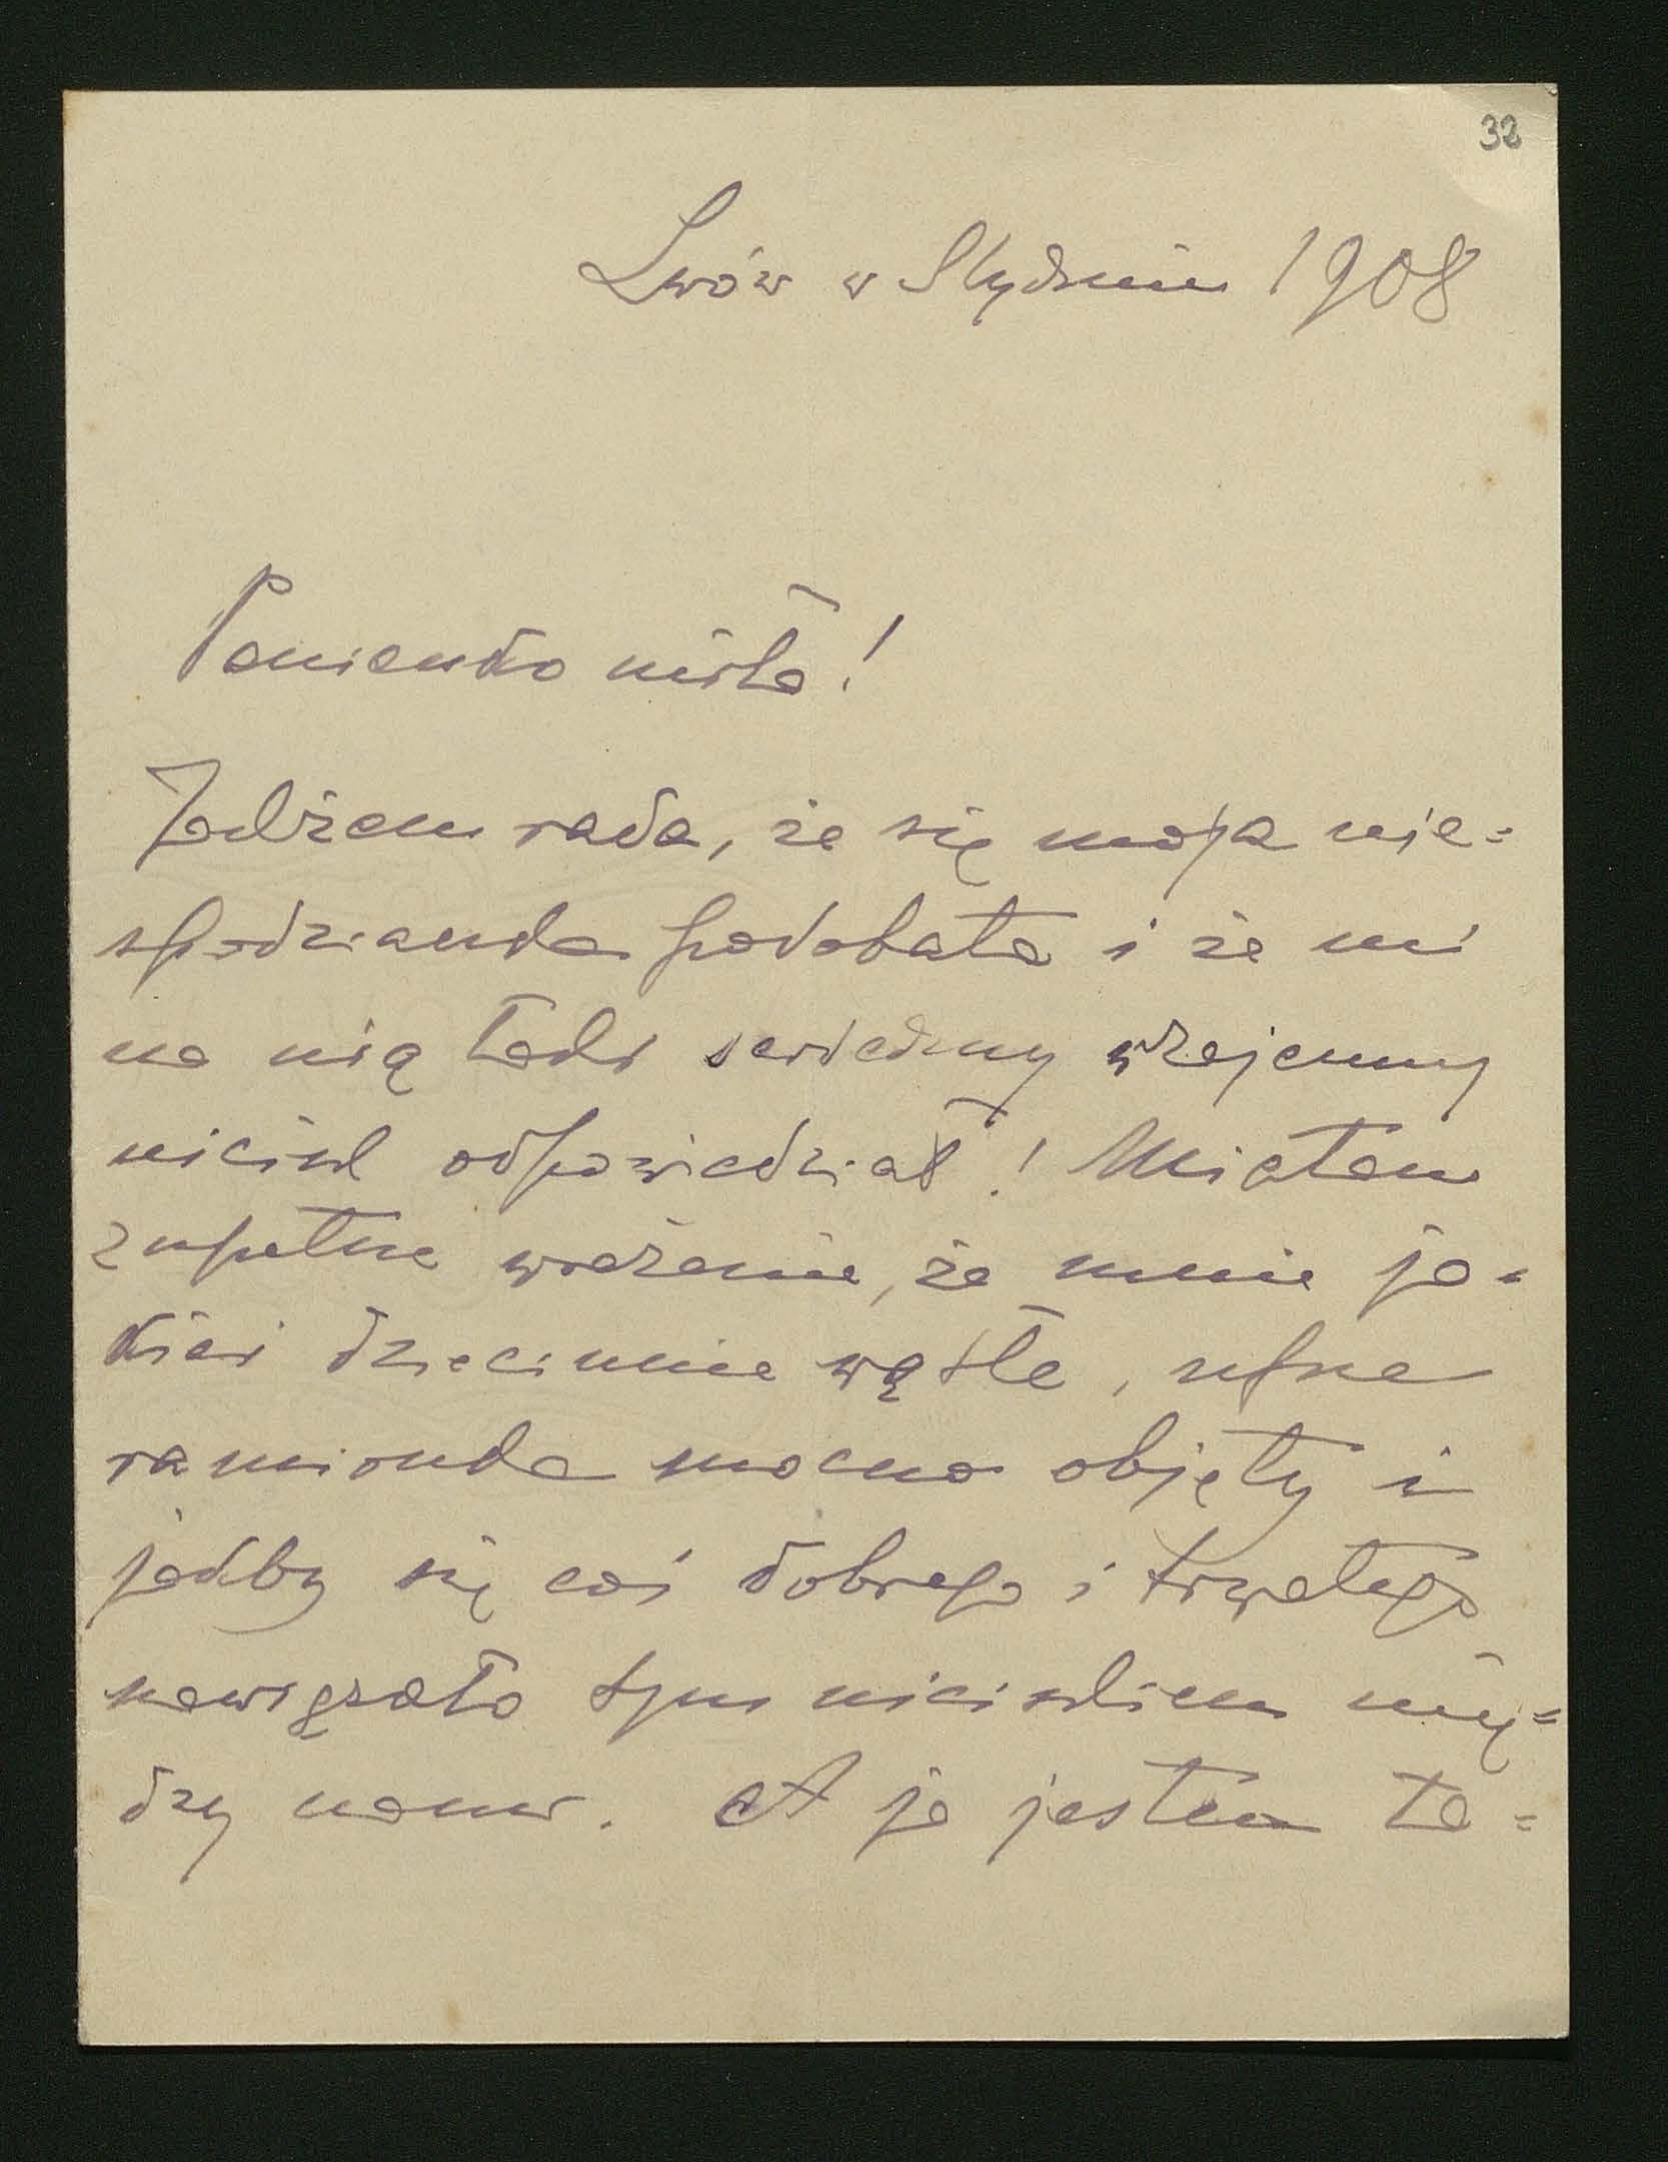 32
Lwów w Styczniu 1908
Panienko miła!
Jakżem rada, że się moja nie=
spodzianka podobała i że mi
na nią taki serdeczny wzajemny
uścisk odpowiedział! Miałam
zupełne wrażenie, że mnie ja=
kieś dziecinnie wątłe, ufne
ramionka mocno objęły i
jakby się coś dobrego i trwałego
nawiązało tym uściskiem mię=
dzy nami. A ja jestem ta=